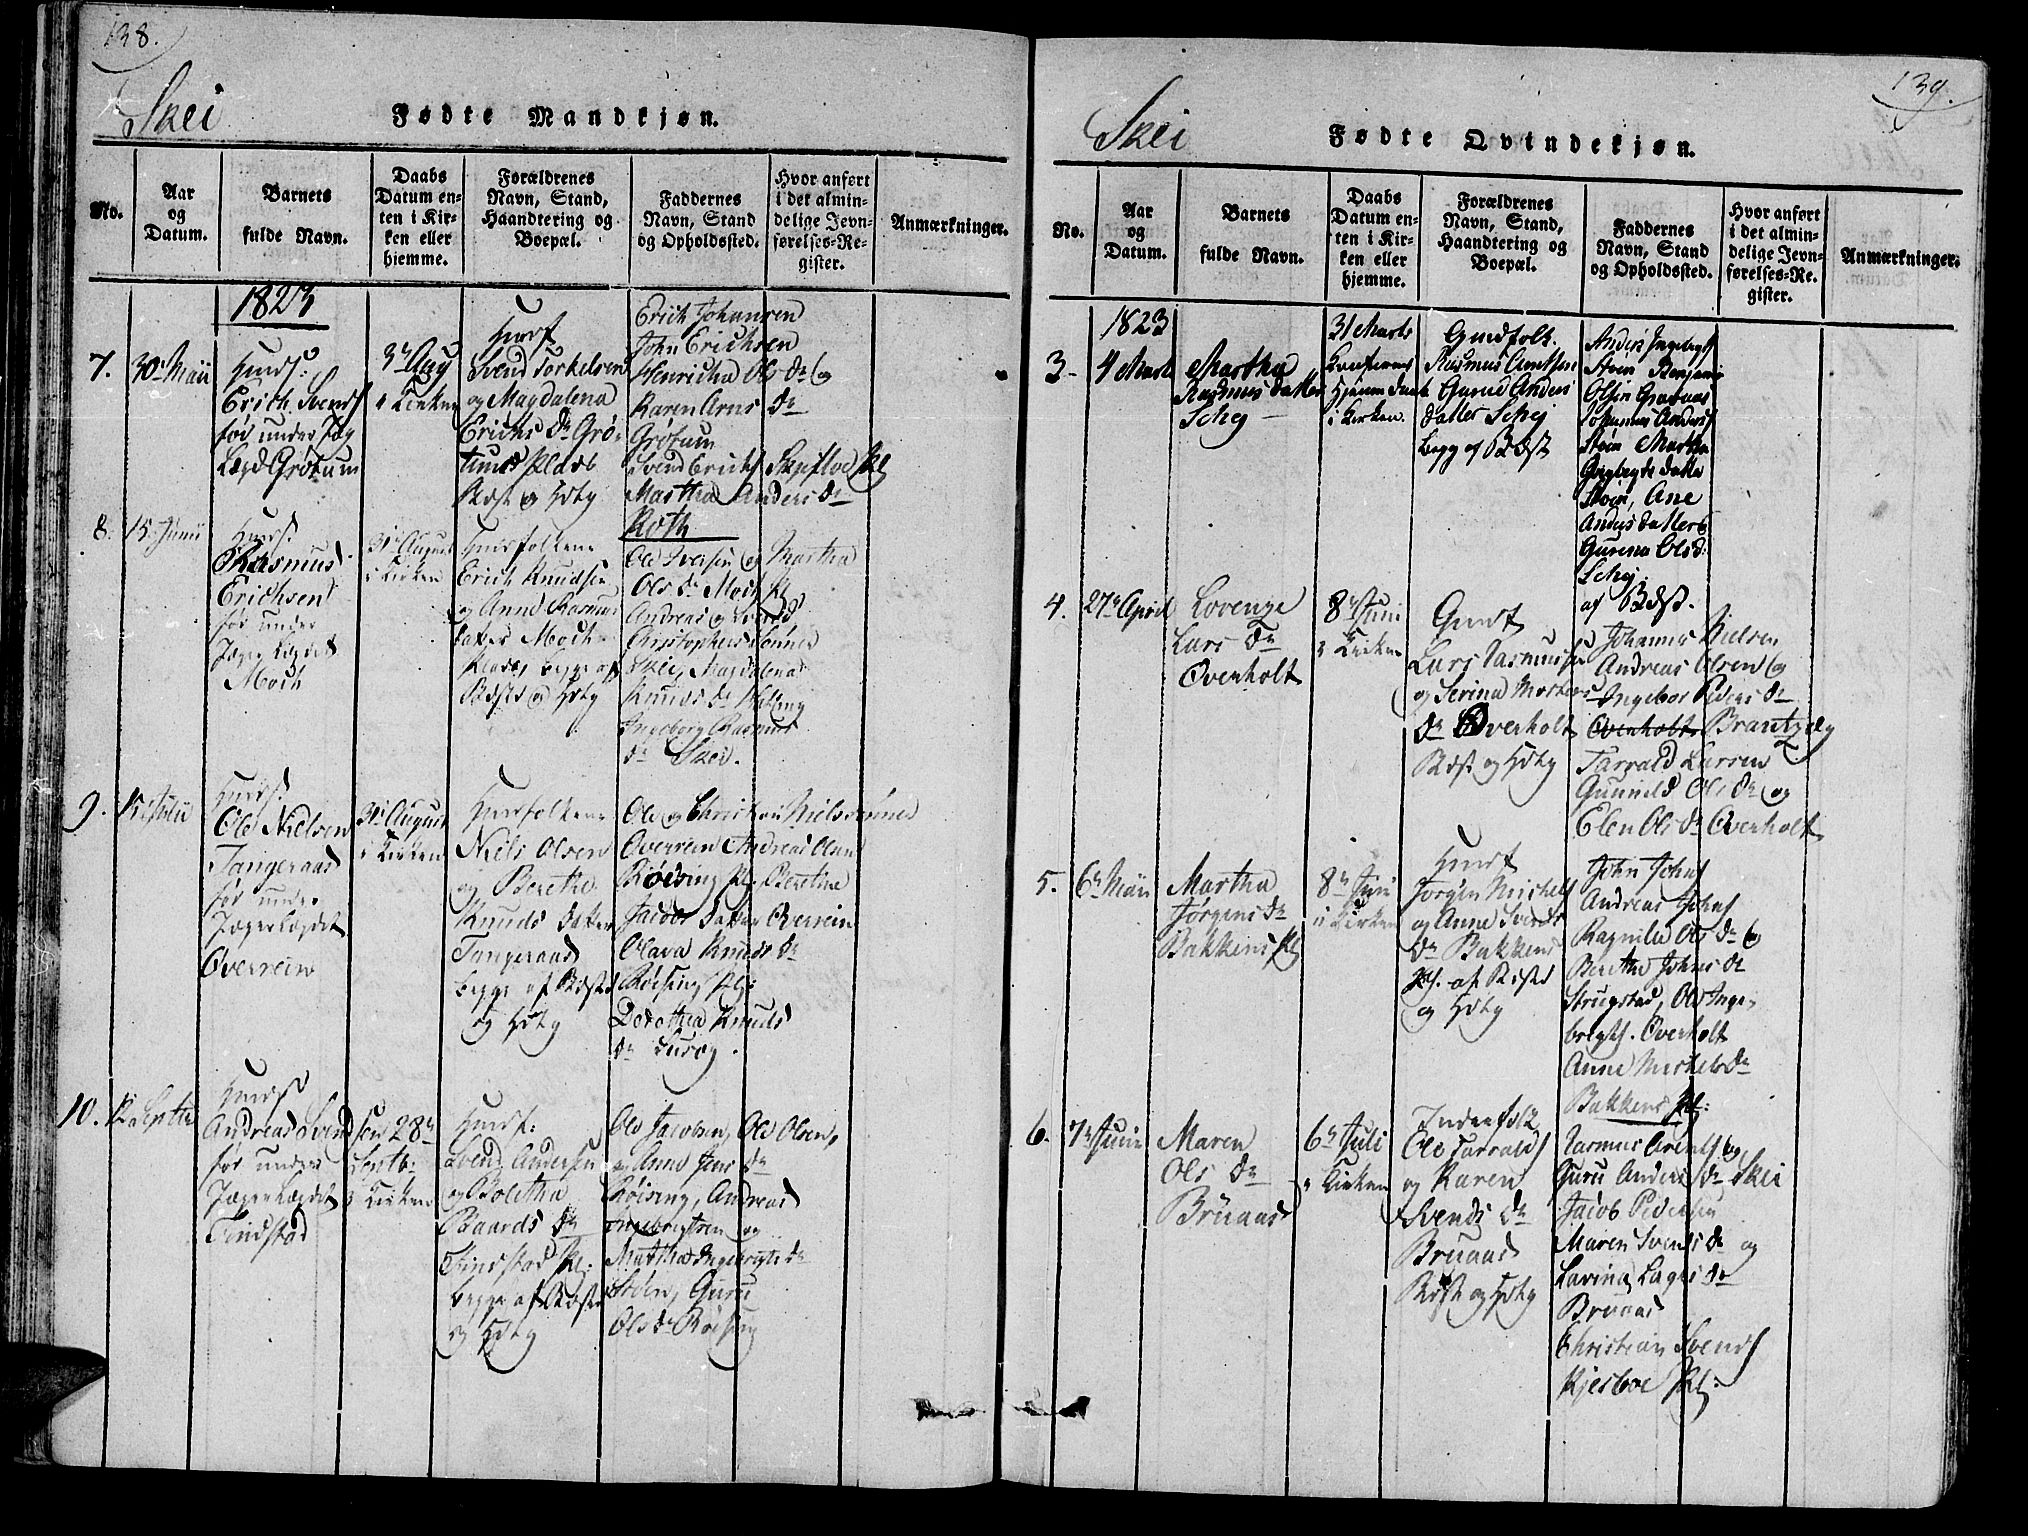 138.
Skei
Fødte Mandkjøn.
No.
Aar
og
Datum.
Barnets
fulde Navn.
Daabs
Datum en-
ten i Kir-
ken eller
hjemme.
Forældrenes
Navn, Stand,
Haandtering og
Boepæl.
Faddernes
Navn, Stand
og Opholdssted.
Hvor anført
i det almin-
delige Jevn-
førelses-Re-
gister.
Anmærkninger.
1823
7.
30 Maii
Erich Svends
før under Jæg
Lægd Grøtum
3 Aug
i Kirken
Svend Torkelsen
og Magdalena
Erichs Dr Grø-
tums
og
Erich Johansen
John Erichsen
Henricha Ols Dr og
Karen Arns Dr
Grøtum
Svend Erichs
Martha Anders Dr
Roth
8.
15 Junii
Rasmus
Erichsen
før under
Jæger Lægdet
Moch
31 August
i Kirken
Erich Knudsen
og Anne Rasmus
datter Moch
begge af
og
Ole Iversen og Martha
Ols Dr Moch Pl
Andreas og
Christophers Sønner
Skei, Magdalena
Knuds Dr
Ingeborg Rasmus
Dr Skei.
9.
15 Julii
Ole Nielsen
Tangeraas
før under
Jæger Lægdet
Overrein
31 August
i Kirken
Niels Olsen
og Berethe
Knuds Datter
Tangeraas
begge af
og
Ole og Christian Niels sønner
Overrein Andreas Olsen
Røising Pl. Beretine
Jacobs Datter Overrein
Olava Knuds Dr
Røising Pl:
Dorothea Knuds
Dr
10.
Septbr
Andreas Svendsen
før under
Jæger Lægdet
Findstad
28
Septb:
i Kirken
Svend Andersen
og Boletha
Baards Dr
Findstad Pl:
begge af
og
Ole Jacobsen, Ole Olsen,
og Anne Jens Dr
Røising, Andreas
og
Martha Ingebrigts Dr
Støen, Guru
Ols Dr Røising
139.
Skei
Fødte Qvindekjøn.
No.
Aar
og
Datum.
Barnets
fulde Navn.
Daabs
Datum en-
ten i Kir-
ken eller
hjemme.
Forældrenes
Navn, Stand,
Haandtering og
Boepæl.
Faddernes
Navn, Stand
og Opholdssted.
Hvor anført
i det almin-
delige Jevn-
førelses-Re-
gister.
Anmærkninger.
1823
3
4 Marts
Martha
Rasmus datter
Schej
31 Marts
Hjemme
i Kirken.
Rasmus Arntsen
Guru Anders
datter Schej
begg af
Støen
Johannes Anders
Støen Martha
datter
Støen, Ane
Anders datter
Gurina Olsd:
Schej.
af
4.
27 April
Lovenze
Lars Dr
Overholt
8 Juni
i Kirken
Lars Rasmusen
og Serina Mortens
Dr Overholt
og
Johannes Nielsen
Andreas Olsen og
Ingebor Peders Dr
Overholt Brantzæg
Tarrald Larsen
Gunneld Ols Dr og
Elen Ols Dr Overholt
5.
6 Maii
Martha
Jørgens Dr
Bakkens Pl
8 Juni
i Kirken
Jørgen Michels
og Anne Svends
Dr Bakkens
Pl. af
og
John Johns
Andreas Johns
Ragnild Ols Dr og
Berethe Johns Dr
Strugstad, Ole Inge-
brigts. Overholt
Anne Michels Dr
Bakkens Pl:
6.
7 Junii
Maren
Ols Dr
Bruaas
6 Juli
i Kirken
Inderfolk
Ole Tarralds
og Karen
Svends Dr
Bruaas
og
Rasmus Arents og
Guru Anders Dr Skei
Jacob Pedersen
Maren Svends Dr og
Lavina Lages Dr
Bruaas
Christian Svends
Kjesboe Pl: